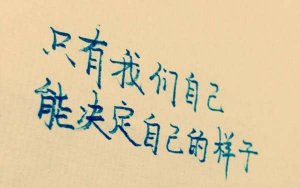 只有我们自己
能决定自己的样子